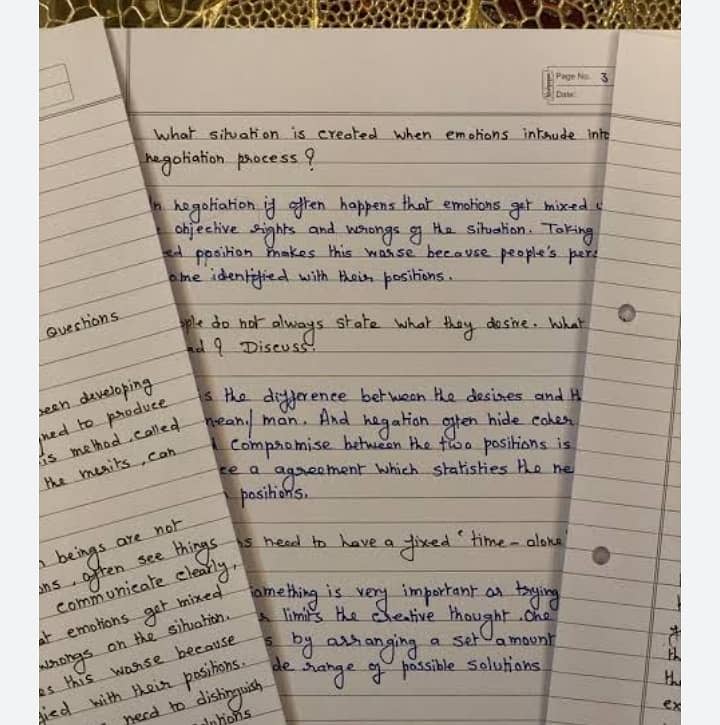 Page No. 3
Date:
What situation is created when emotions intrude into
negotiation process ?
In negotiation if often happens that emotions get mixed
objective rights and wrongs of the situation. Taking
ed position makes this worse because people's pers
ome identified with their positions.
ople do not always state what they desire. What
ad ? Discuss.
is the difference between the desires and
mean/ man. And negation often hide
Compromise between the two positions is
ce a agreement which statisties the ne
positions.
ns need to have a fixed 'time - alone'
Something is very important as trying
limits the creative thought. One
by arranging a set amount
de range of possible solutions
Questions
been developing
ned to produce
is method, called
the merits, can
beings are not
ns, often see things
communicate clearly,
at emotions get mixed
wrongs on the situation.
es this worse because
ied with their positions.
need to distinguish
lutions
th
the
ex